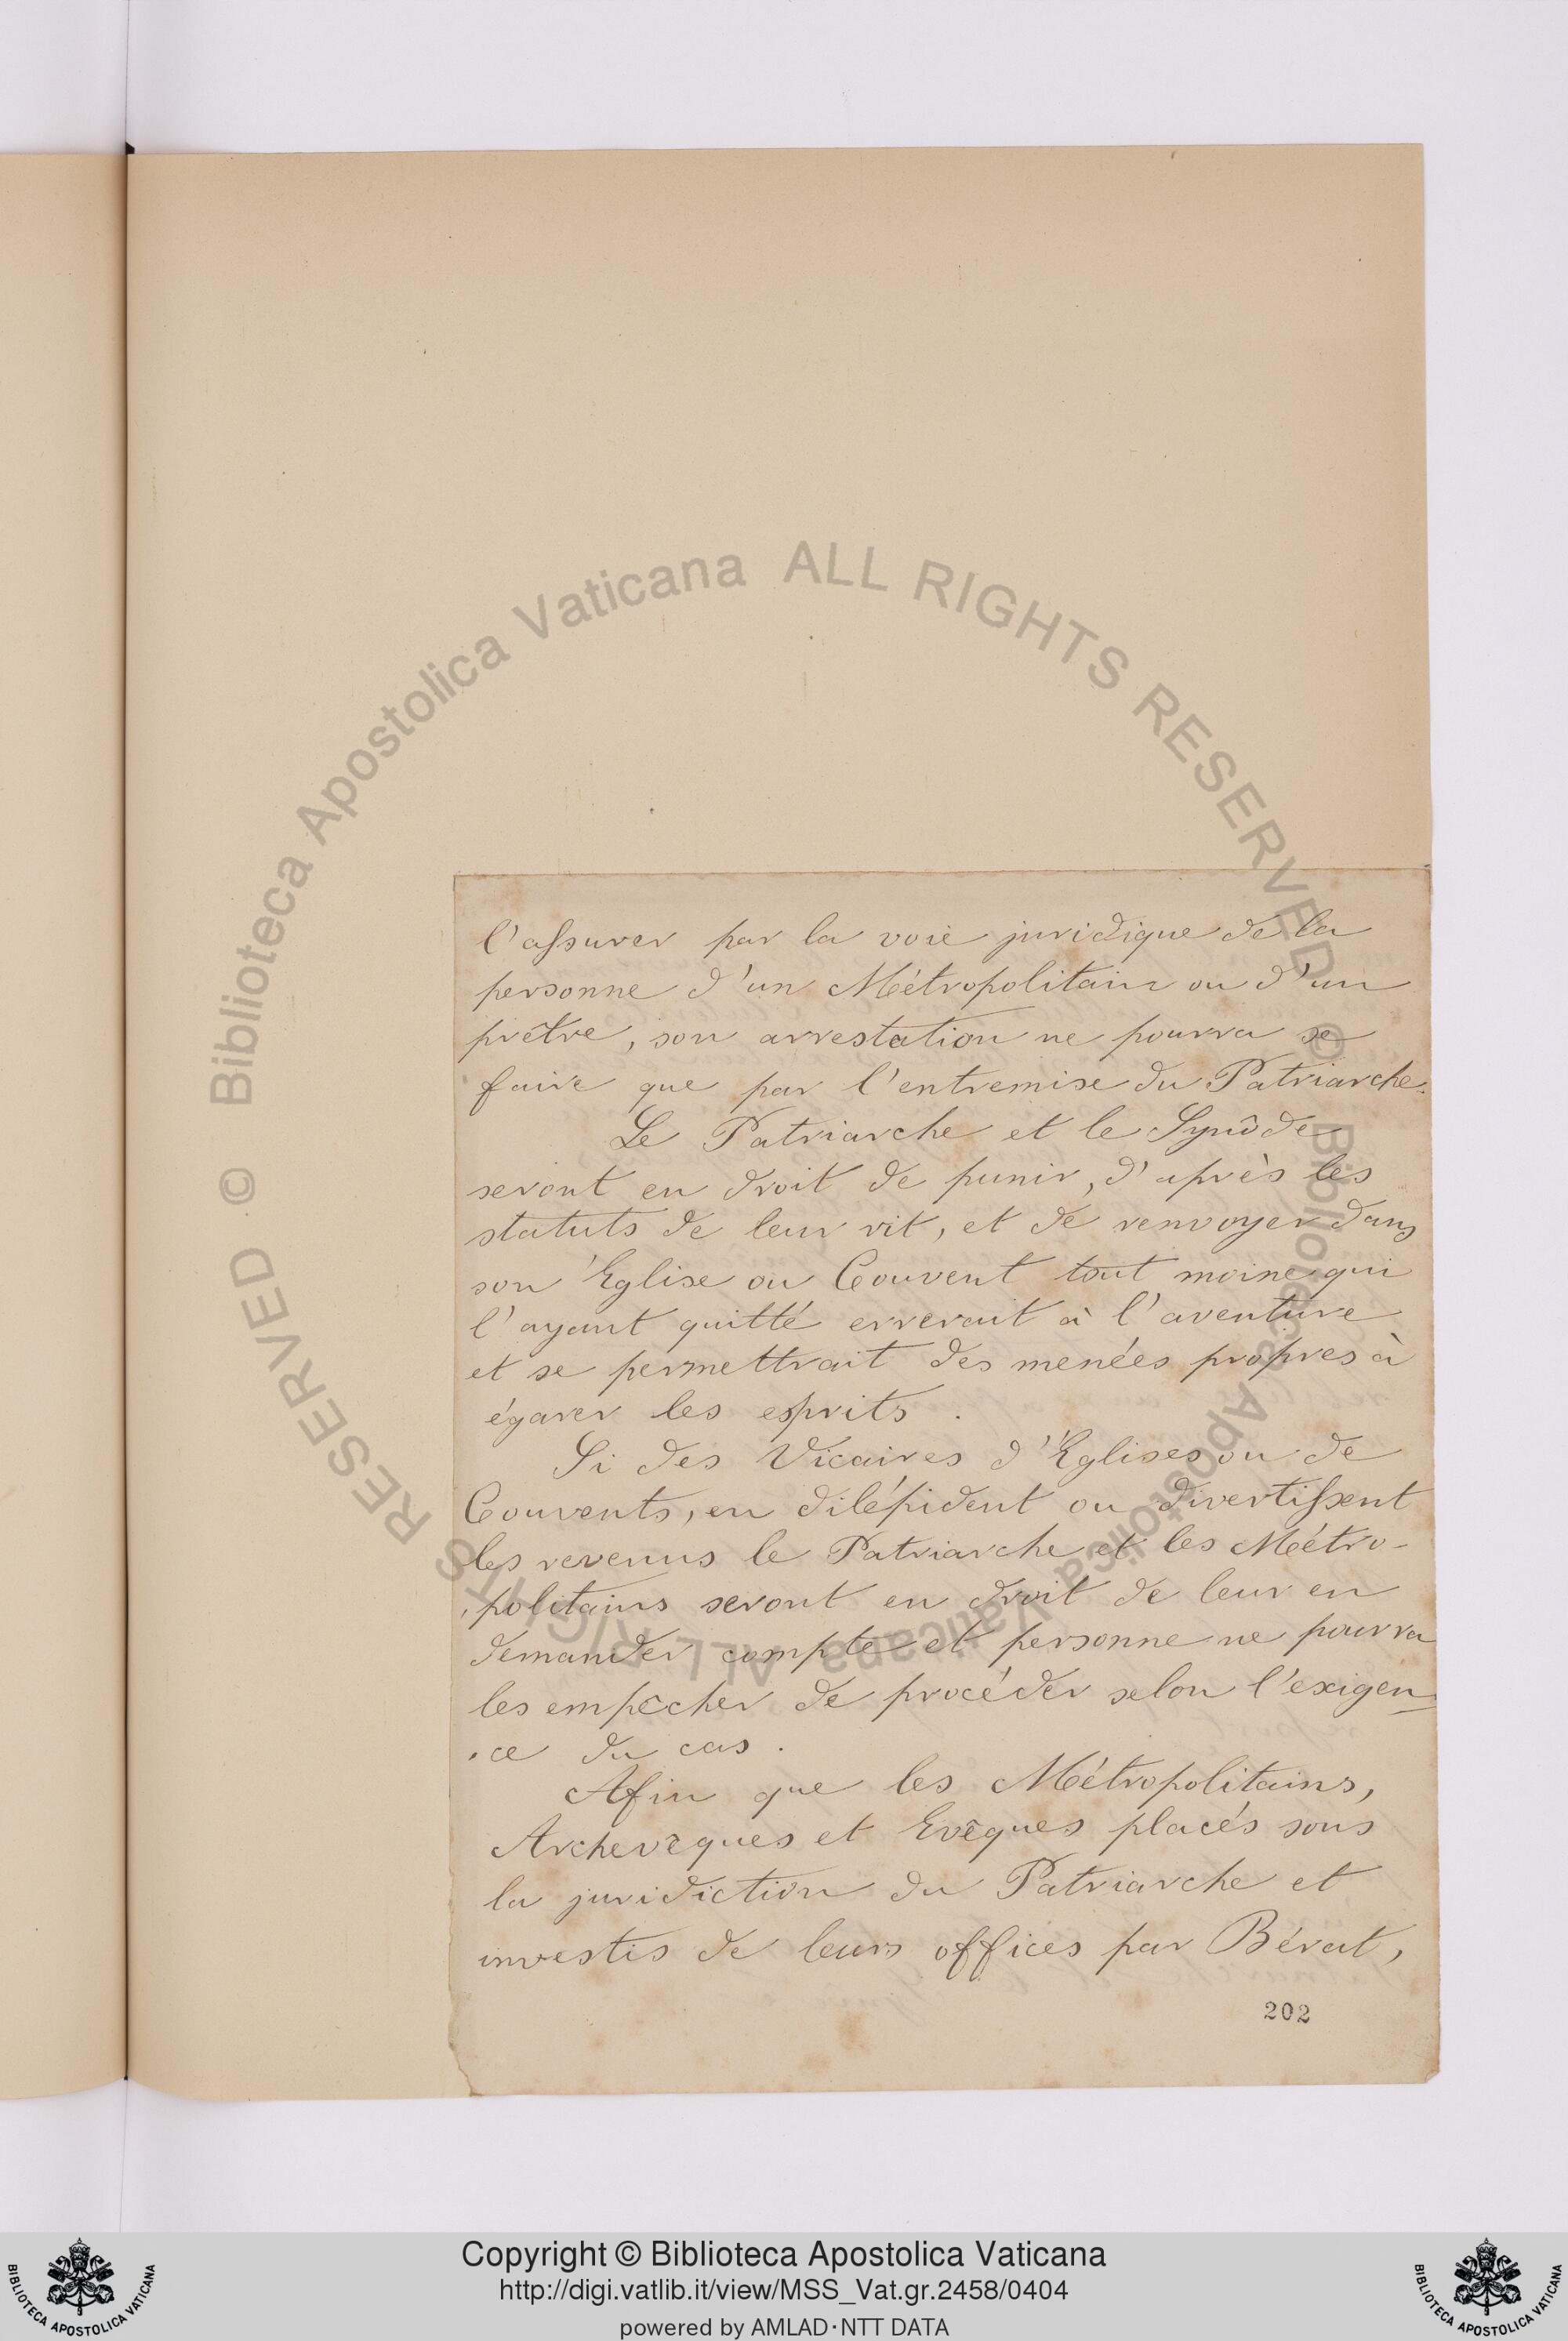 l'assurer par la voie juridique de la
personne d'un Métropolitain ou d'un
prêtre, son arrestation ne pourra se
faire que par l'entremise du Patriarche.
Le Patriarche et le Synôde
seront en droit de punir, d'après les
statuts de leur rit, et de renvoyer dans
son Eglise ou Couvent tout moine qui
l'ayant quitté errerait à l'aventure
et se permettrait des menées propres à
égarer les esprits.
Si des Vicaires d'Eglises ou de
Couvents, en dilépident ou divertissent
les revenus le Patriarche et les Métro-
politains seront en droit de leur en
demander compte et personne ne pourra
les empêcher de procéder selon l'exigen-
ce du cas.
Afin que les Métropolitains,
Archevêques et Evêques placés sous
la juridiction du Patriarche et
investis de leurs offices par Bérat,
202
Biblioteca Apostolica Vaticana ALL RIGHTS RESERVED ©
Biblioteca Apostolica Vaticana ALL RIGHTS RESERVED ©
Copyright © Biblioteca Apostolica Vaticana
http://digi.vatlib.it/view/MSS_Vat.gr.2458/0404
powered by AMLAD·NTT DATA
BIBLIOTECA APOSTOLICA VATICANA
BIBLIOTECA APOSTOLICA VATICANA